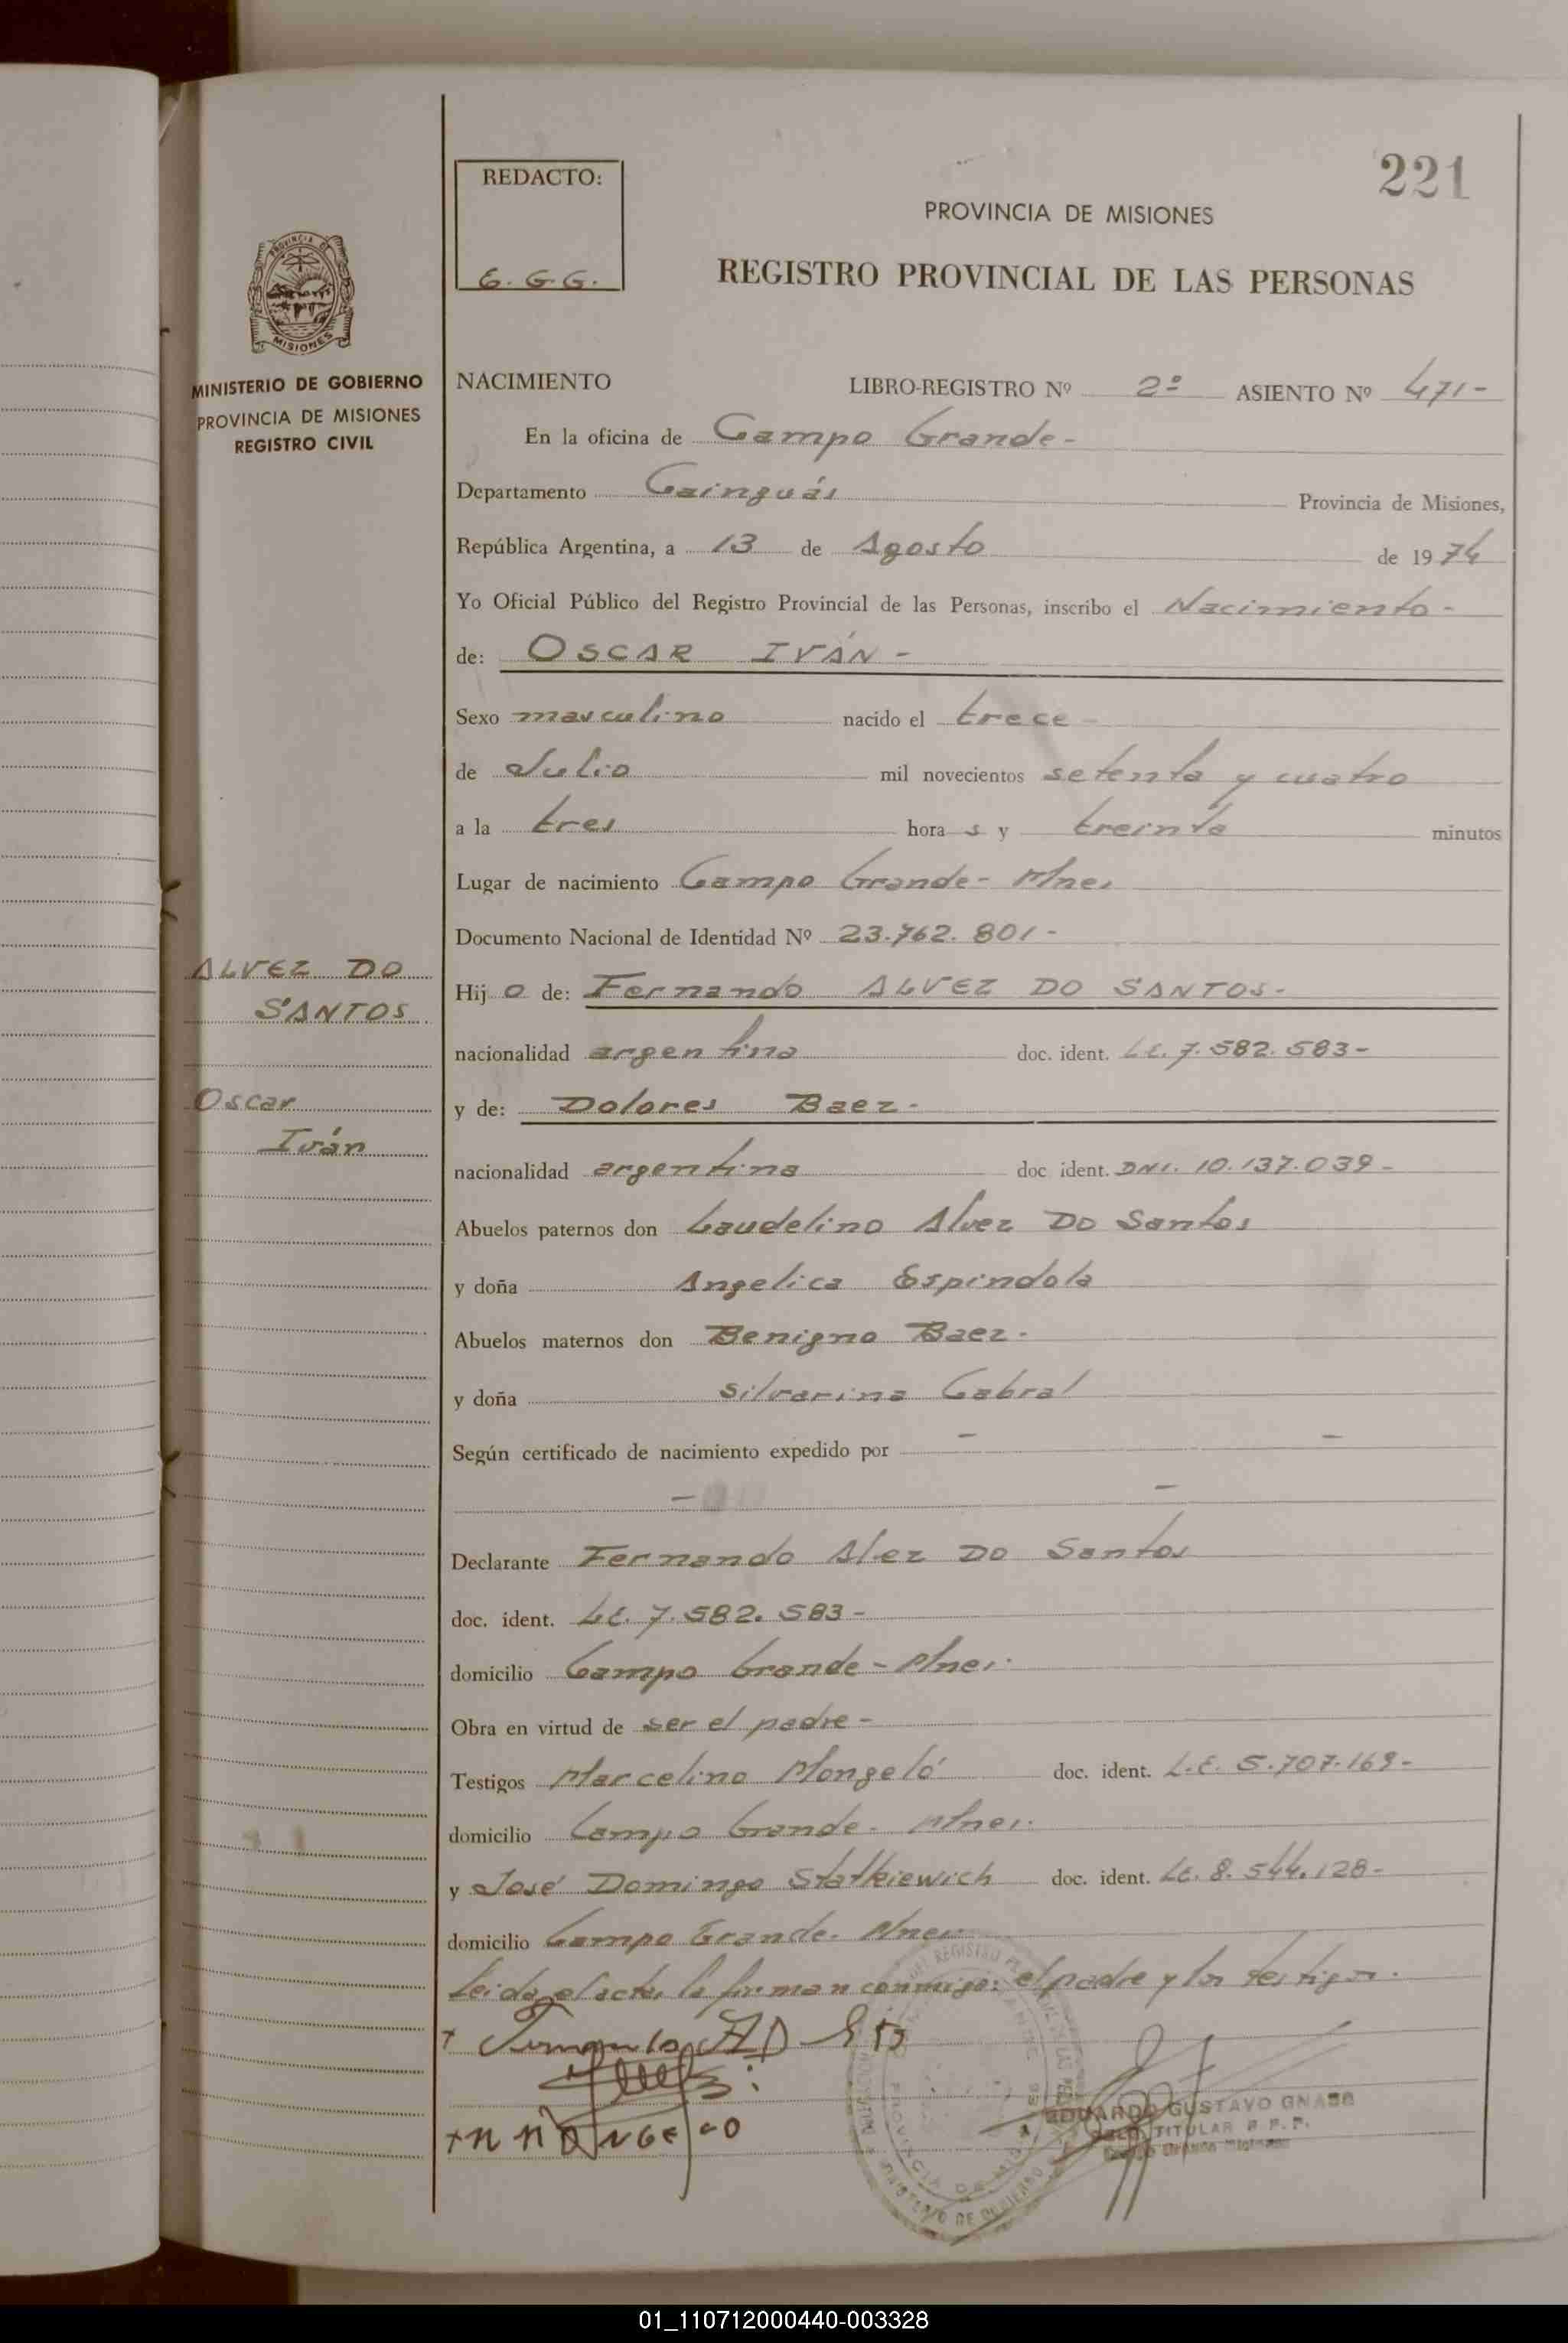 221
REDACTO:
E. G. G.
PROVINCIA DE MISIONES
REGISTRO PROVINCIAL DE LAS PERSONAS
PROVINCIA DE
MISIONES
MINISTERIO DE GOBIERNO
PROVINCIA DE MISIONES
REGISTRO CIVIL
NACIMIENTO LIBRO-REGISTRO Nº 2º ASIENTO Nº 471-
En la oficina de Campo Grande-
Departamento Cainguás Provincia de Misiones,
República Argentina, a 13 de Agosto de 1974
Yo Oficial Público del Registro Provincial de las Personas, inscribo el Nacimiento-
de: OSCAR IVÁN-
Sexo masculino nacido el trece-
de Julio mil novecientos setenta y cuatro
a la tres hora s y treinta minutos
Lugar de nacimiento Campo Grande- Mnes
Documento Nacional de Identidad Nº 23.762.801-
ALVEZ DO
SANTOS
Oscar
Iván
Hij o de: Fernando ALVEZ DO SANTOS-
nacionalidad argentina doc. ident. LE. 7.582.583-
y de: Dolores Baez-
nacionalidad argentina doc ident. DNI. 10.137.039-
Abuelos paternos don Laudelino Alvez DO Santos
y doña Angelica Espindola
Abuelos maternos don Benigno Baez-
y doña Silvarina Cabral
Según certificado de nacimiento expedido por - -
- -
Declarante Fernando Alez DO Santos
doc. ident. LE. 7.582.583-
domicilio Campo Grande- Mnes.
Obra en virtud de ser el padre-
Testigos Marcelino Mongeló doc. ident. L.E. 5.707.169-
domicilio Campo Grande- Mnes.
y José Domingo Statkiewich doc. ident. LE. 8.544.128-
domicilio Campo Grande- Mnes
Leida el acta, la firman conmigo: el padre y los testigos.
EDUARDO GUSTAVO GNASS
TITULAR R.P.P.
MINISTERIO DE GOBIERNO
01_110712000440-003328